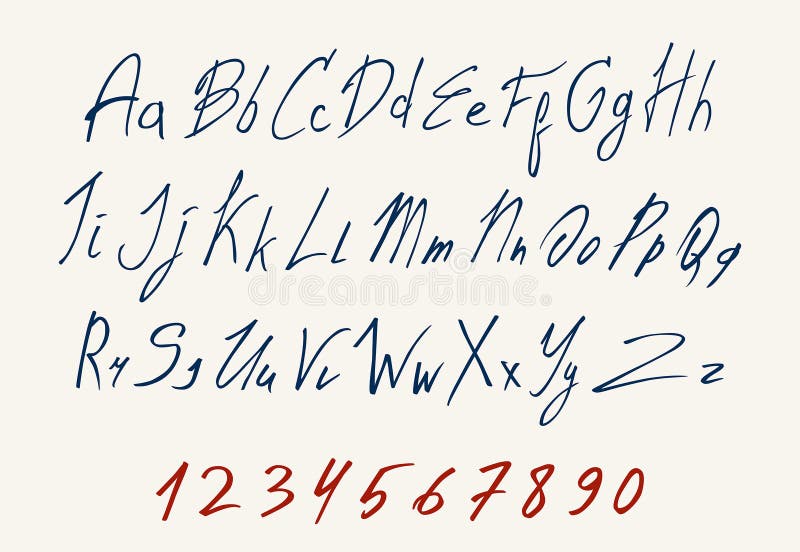 Aa Bb Cc Dd Ee Ff Gg Hh
Ii Jj Kk Ll Mm Nn Oo Pp Qq
Rr Ss Uu Vv Ww Xx Yy Zz
1 2 3 4 5 6 7 8 9 0
dreamstime